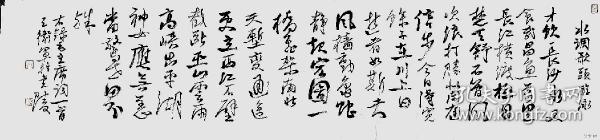 水调歌头游泳
才饮长沙水又
食武昌鱼万里
长江横渡极目
楚天舒不管风
吹浪打胜似闲庭
信步今日得宽
馀子在川上曰
逝者如斯夫
风樯动龟蛇
静起宏图一
桥飞架南北
天堑变通途
更立西江石壁
截断巫山云雨
高峡出平湖
神女应无恙
当惊世界
殊
毛主席词一首